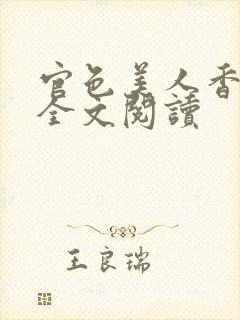 官色美人香
全文閱讀
王良瑞